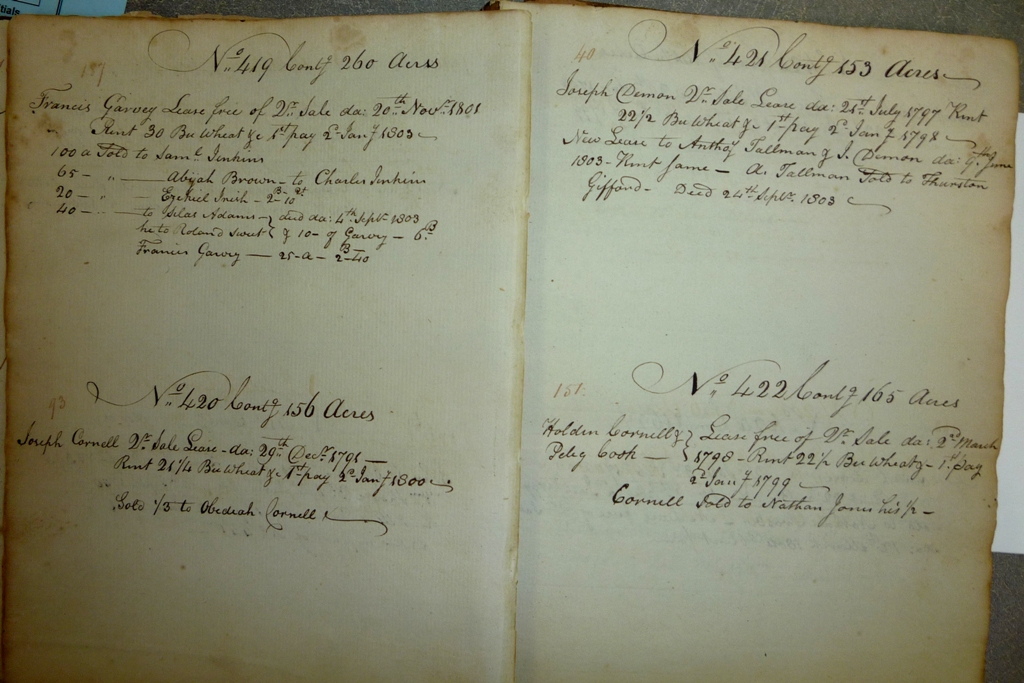 tials
157
No. 419 Contg 260 Acres
Francis Garvey Lease free of Qr. Sale da: 20th Novr. 1801
Rent 30 Bu Wheat &c 1st pay 2d Jany 1803
100 a Sold to Saml. Jenkins
65 - " - Abijah Brown - to Charles Jenkins
20 - " - Ezekiel Irish - 2B-10qt
40 - - to Silas Adams - deed da: 4th Septr. 1803
he to Roland Sweet & 10 - of Garvey - 6B
Francis Garvey - 25-a - 2B-40
93
No. 420 Contg 156 Acres
Joseph Cornell Qr. Sale Lease - da: 29th Decr. 1791 -
Rent 21 1/4 Bu Wheat &c 1st pay 2d Jany 1800
Sold 1/3 to Obediah Cornell
40
No. 421 Contg 153 Acres
Joseph Demon Qr. Sale Lease da: 21st July 1797 Rent
22 1/2 Bu Wheat & 1st pay 2d Jany 1798
New Lease to Anthoy Tallman & J. Demon da: 9th June
1803 - Rent Same - A. Tallman Sold to Thurston
Gifford - Deed 24th Septr. 1803
151
No. 422 Contg 165 Acres
Holden Cornell & } Lease free of Qr. Sale da: 2d March
Peleg Cook - } 1798 - Rent 22 1/2 Bu Wheat & - 1st pay
2d Jany 1799
Cornell Sold to Nathan Jones his 1/2 -